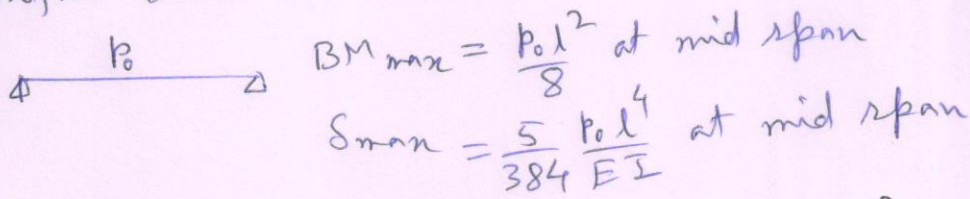 p₀
BM max = p₀l²/8 at mid span
δmax = 5/384 p₀l⁴/EI at mid span